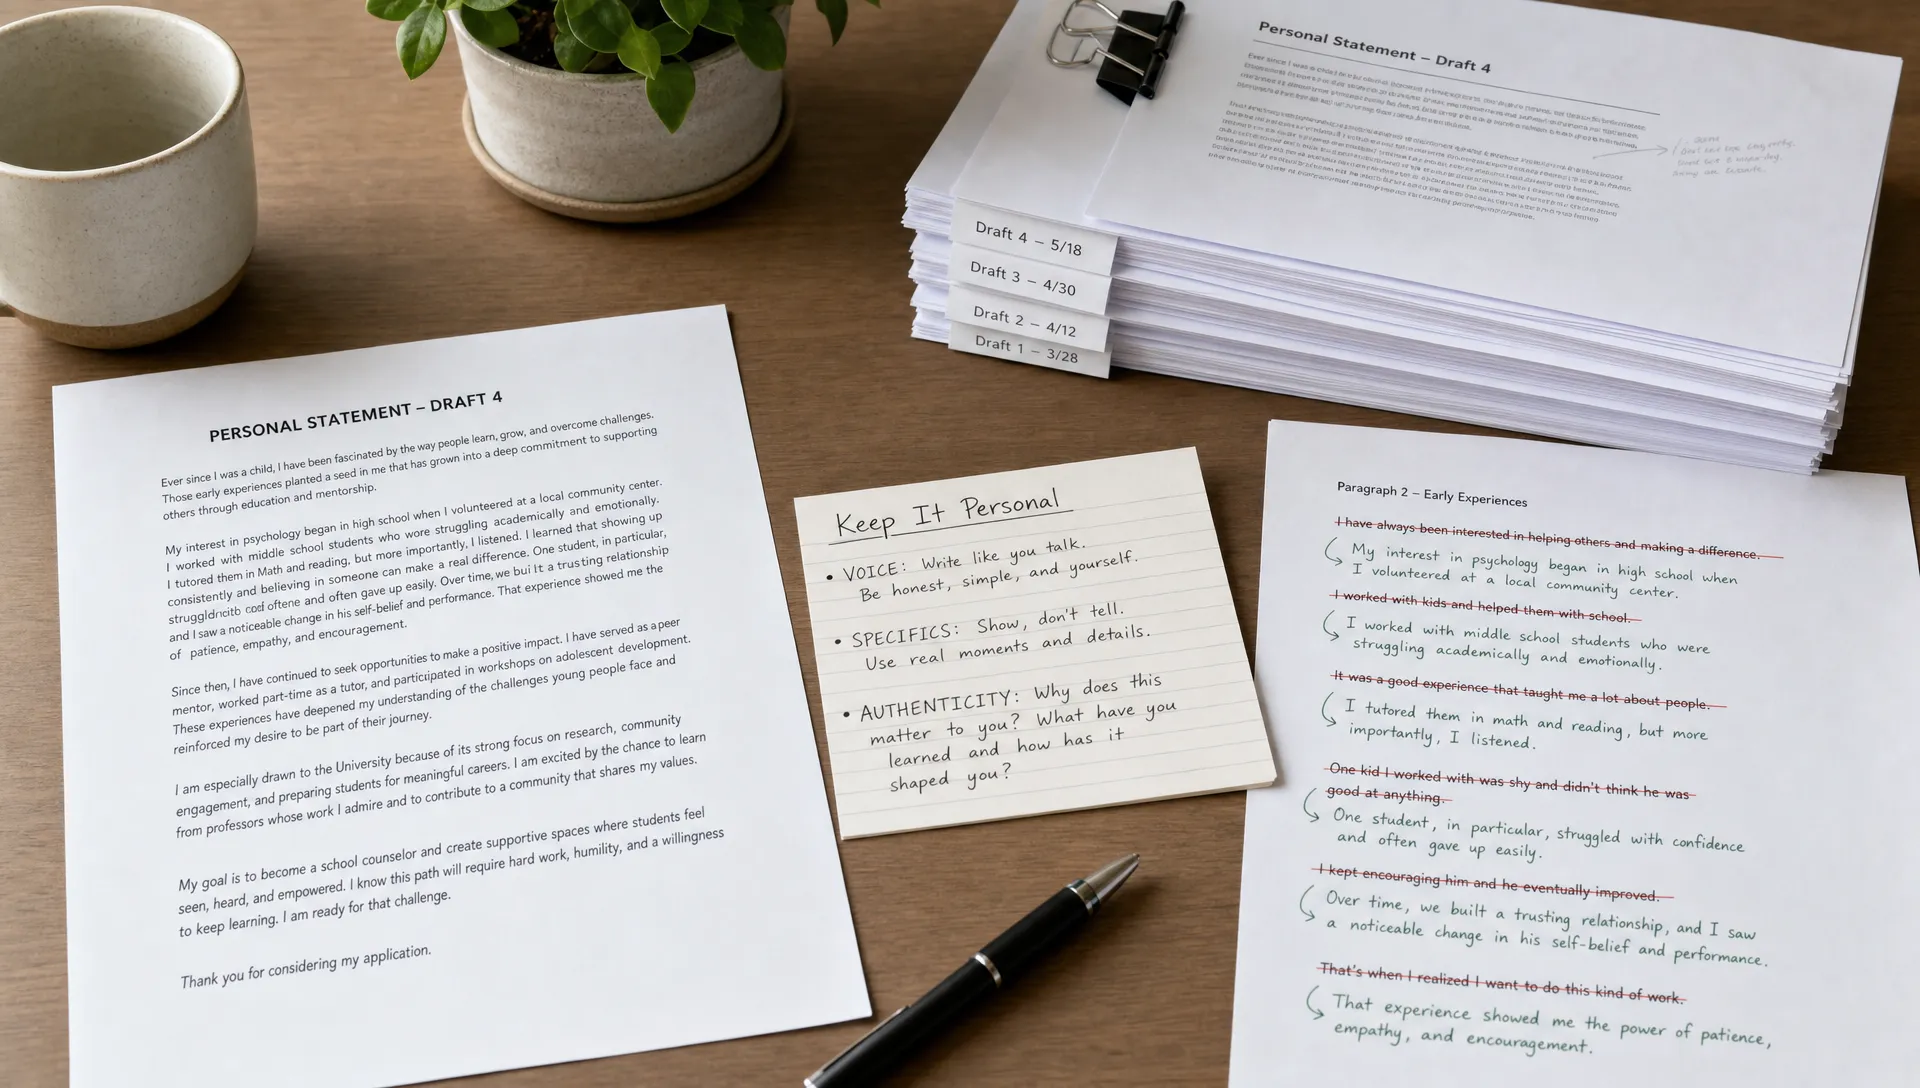 PERSONAL STATEMENT – DRAFT 4
Ever since I was a child, I have been fascinated by the way people learn, grow, and overcome challenges.
Those early experiences planted a seed in me that has grown into a deep commitment to supporting
others through education and mentorship.
My interest in psychology began in high school when I volunteered at a local community center.
I worked with middle school students who wore struggling academically and emotionally.
I tutored them in Math and reading, but more importantly, I listened. I learned that showing up
consistently and believing in someone can make a real difference. One student, in particular,
and often gave up easily. Over time, we built a trusting relationship
and I saw a noticeable change in his self-belief and performance. That experience showed me the
of patience, empathy, and encouragement.
Since then, I have continued to seek opportunities to make a positive impact. I have served as a peer
mentor, worked part-time as a tutor, and participated in workshops on adolescent development.
These experiences have deepened my understanding of the challenges young people face and
reinforced my desire to be part of their journey.
I am especially drawn to the University because of its strong focus on research, community
engagement, and preparing students for meaningful careers. I am excited by the chance to learn
from professors whose work I admire and to contribute to a community that shares my values.
My goal is to become a school counselor and create supportive spaces where students feel
seen, heard, and empowered. I know this path will require hard work, humility, and a willingness
to keep learning. I am ready for that challenge.
Thank you for considering my application.
Personal Statement – Draft 4
Draft 4 – 5/18
Draft 3 – 4/30
Draft 2 – 4/12
Draft 1 – 3/28
Keep It Personal
• VOICE: Write like you talk.
Be honest, simple, and yourself.
• SPECIFICS: Show, don't tell.
Use real moments and details.
• AUTHENTICITY: Why does this
matter to you? What have you
learned and how has it
shaped you?
Paragraph 2 – Early Experiences
I have always been interested in helping others and making a difference.
My interest in psychology began in high school when
I volunteered at a local community center.
I worked with kids and helped them with school.
I worked with middle school students who were
struggling academically and emotionally.
It was a good experience that taught me a lot about people.
I tutored them in math and reading, but more
importantly, I listened.
One kid I worked with was shy and didn't think he was
good at anything.
One student, in particular, struggled with confidence
and often gave up easily.
I kept encouraging him and he eventually improved.
Over time, we built a trusting relationship, and I saw
a noticeable change in his self-belief and performance.
That's when I realized I want to do this kind of work.
That experience showed me the power of patience,
empathy, and encouragement.